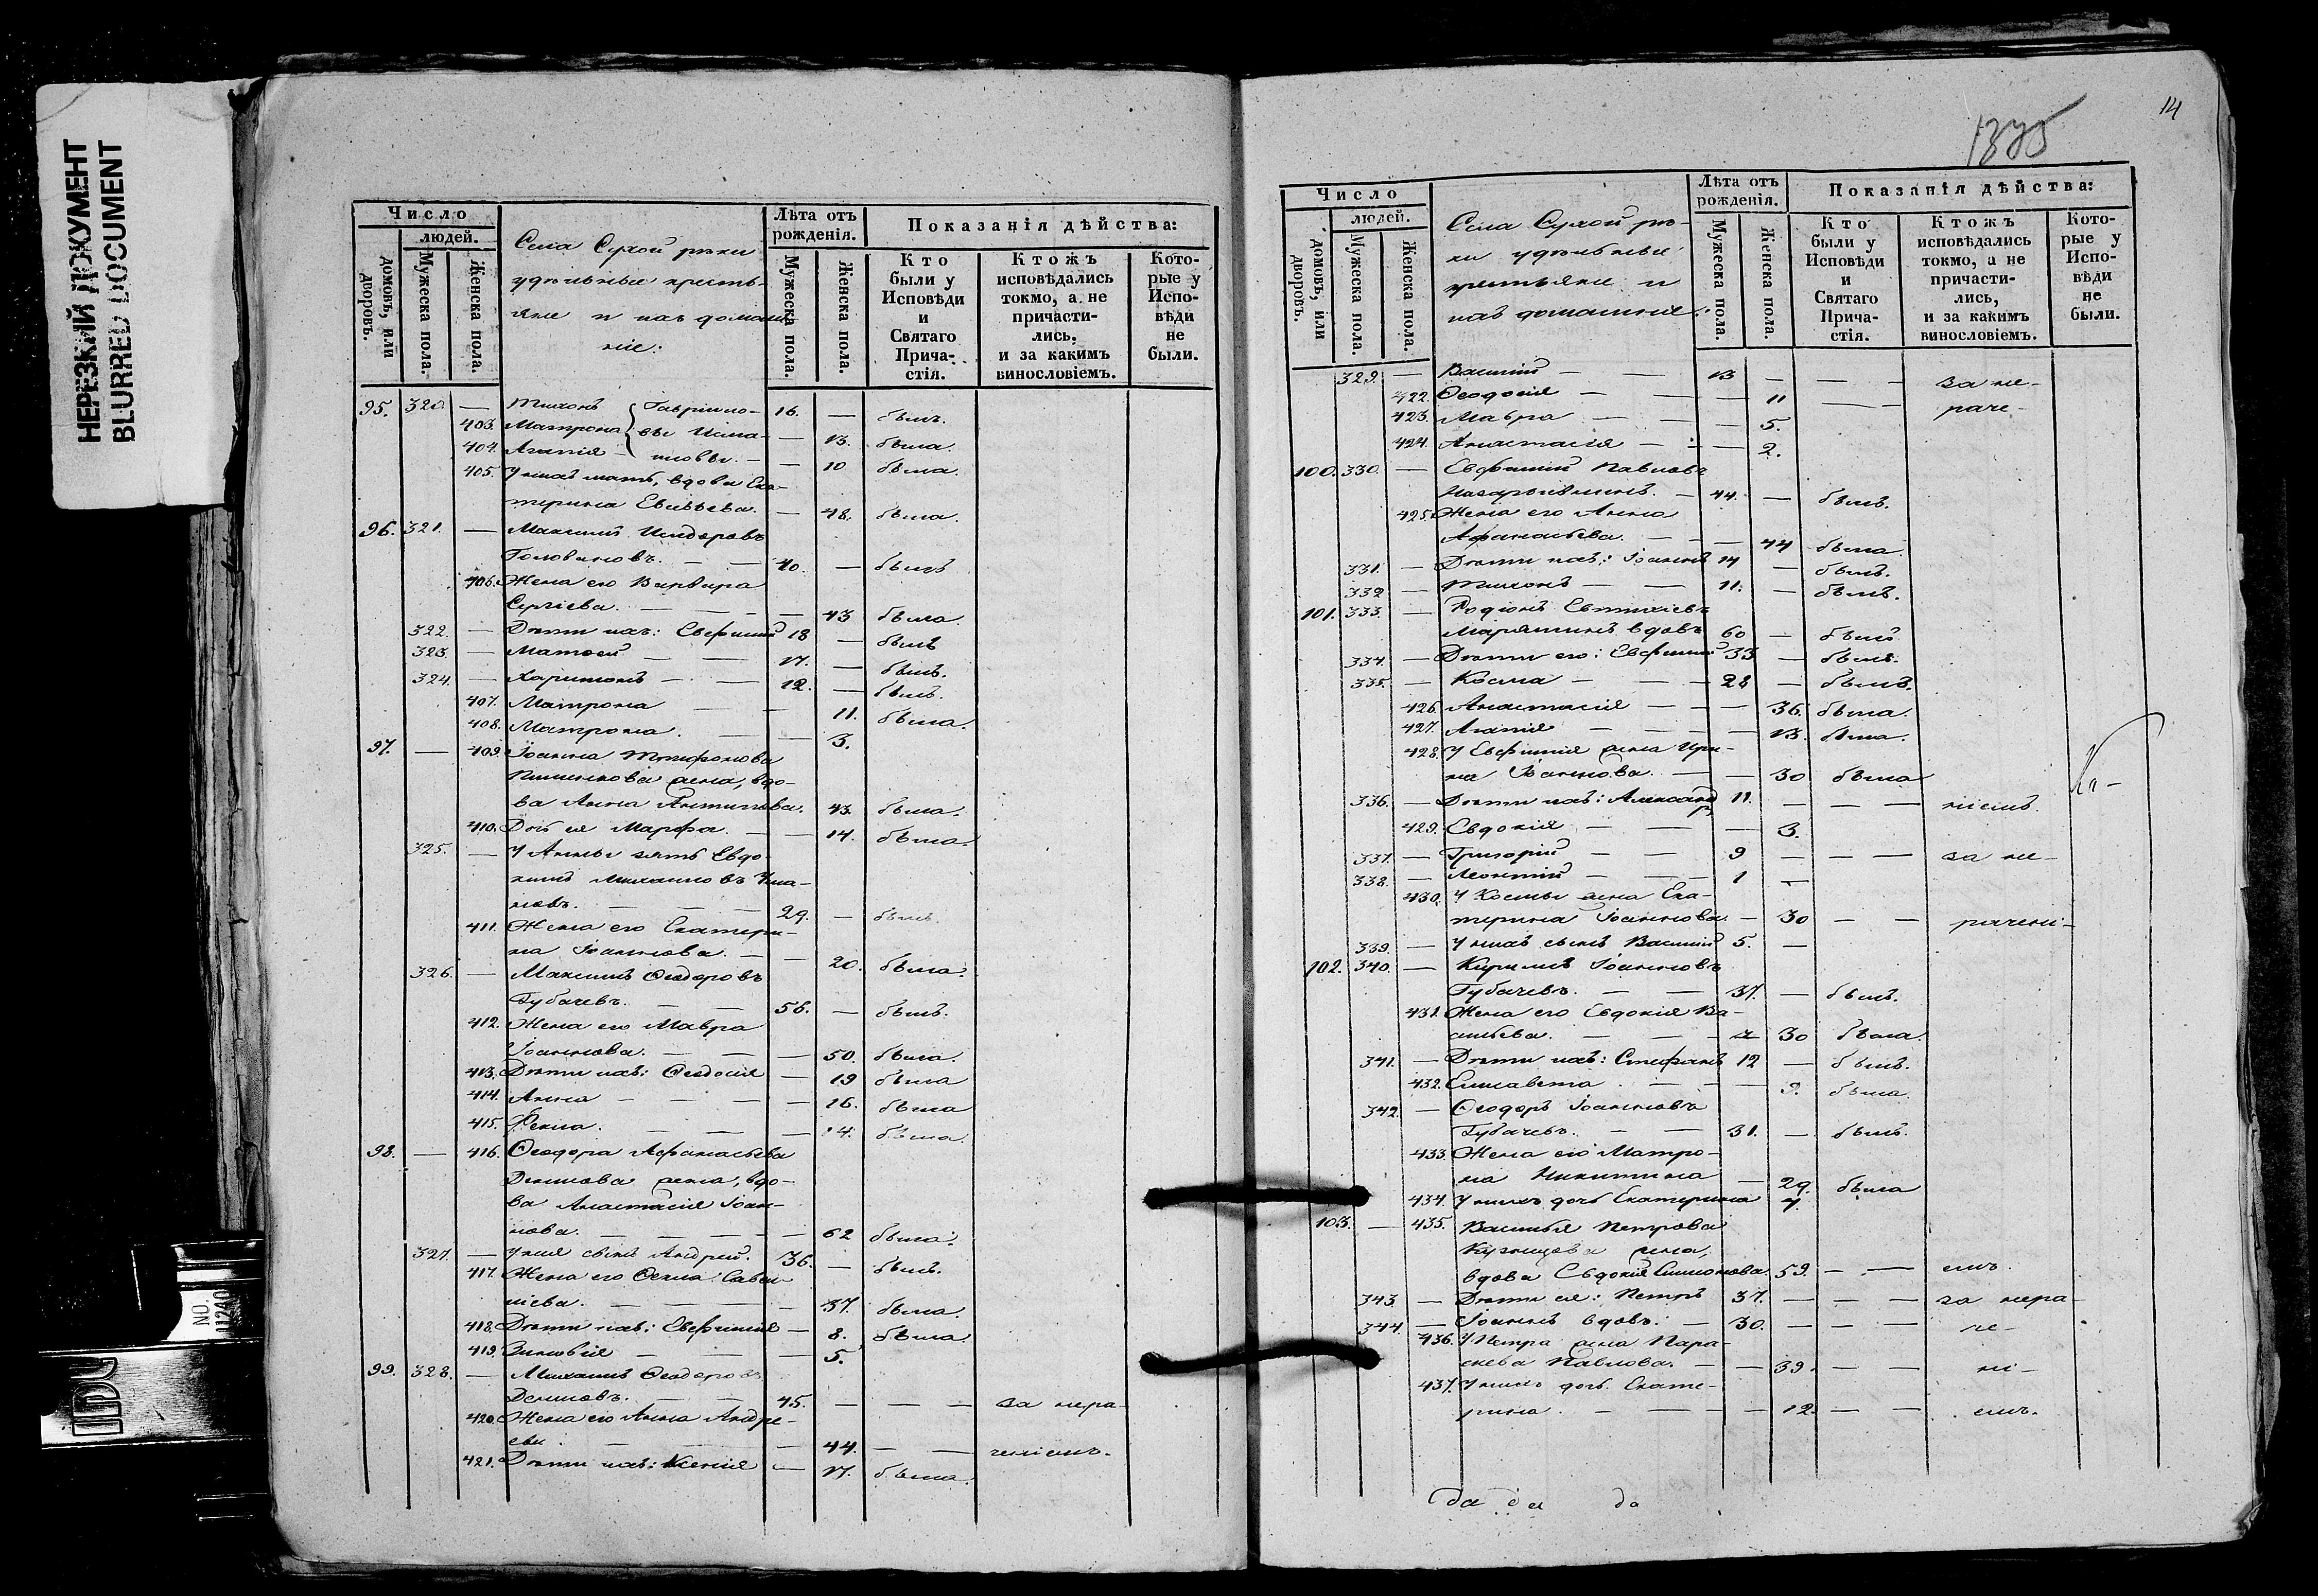 НЕРЕЗКИЙ ДОКУМЕНТ
BLURRED DOCUMENT
NO. 11240
Число
людей.
домовъ, или дворовъ.
Мужеска пола.
Женска пола.
Села Сухой рѣки
удѣльные кресть-
яне и ихъ домаш-
ніе:
Лѣта отъ рожденія.
Мужеска пола.
Женска пола.
Показанія дѣйства:
Кто были у Исповѣди и Святаго Прича-стія.
Ктожъ исповѣдались токмо, а не причасти-лись, и за какимъ винословіемъ.
Кото-рые у Испо-вѣди не были.
95. 320. — Тихонъ { Гавріило- 16. — былъ.
403. Матрона { вы — 13. была.
404. Агапія — — 10 была.
405. У нихъ мать, вдова Ека-
терина Евсѣева. — 48. была.
96. 321. — Максимъ Исидоровъ
Головановъ. — — 40. — былъ
406. Жена его Варвара
Сергіева. — — — 43 была.
322. — Дѣти ихъ: Евфимій 18 — былъ
323. — Матѳей — — 17. — былъ.
324. — Харитонъ — — 12. — былъ.
407. Матрона — — 11. была.
408. Матрона. — — 3.
97. — 409. Іоанна Трифонова
жена, вдо-
ва Анна Антипова. 43. была.
410. Дочь ея Марфа. — — 14. была.
325. — У Анны зять Евдо-
кимъ Михаиловъ
— — 29. — былъ.
411. Жена его Екатери-
на Іоаннова. — — 20. была.
326. — Максимъ Ѳеодоровъ
Губачевъ. — — 56. — былъ.
412. Жена его Мавра
Іоаннова. — — — 50. была.
413. Дѣти ихъ: Ѳеодосія — 19 была
414. Анна — — — — 16. была
415. Ѳекла. — — — 14. была.
98. — 416. Ѳеодора Афанасьева
Денисова жена, вдо-
ва Анастасія Іоан-
нова. — — — — 62 была.
327. — У нея сынъ Андрей. 36. — былъ.
417. Жена его Ѳекла Саве-
ліева. — — — — 37. была.
418. Дѣти ихъ: Евфимія — 8. была.
419. Зиновія — — — 5.
99. 328. — Михаилъ Ѳеодоровъ
Денисовъ. — — 45. — — — за нера-
420. Жена его Анна Андре-
ева. — — — 44. — — ченіемъ.
421. Дѣти ихъ: Ксенія — 17. была.
14
1375
Число
людей.
домовъ, или дворовъ.
Мужеска пола.
Женска пола.
Села Сухой рѣ-
ки удѣльные
крестьяне и
ихъ домашніе.
Лѣта отъ рожденія.
Мужеска пола.
Женска пола.
Показанія дѣйства:
Кто были у Исповѣди и Святаго Прича-стія.
Ктожъ исповѣдались токмо, а не причасти-лись, и за какимъ винословіемъ.
Кото-рые у Испо-вѣди не были.
329. — Василій — — 13 — — — за не-
422. Ѳеодосія — — — 11 — — раче-
423. Мавра — — — 5.
424. Анастасія — — — 2.
100. 330. — Евфимій Павловъ
— 44. — былъ.
425. Жена его Анна
Афанасьева. — — — 44 была.
331. — Дѣти ихъ: Іоаннъ 14 — былъ.
332 — Тихонъ — — 11. — былъ.
101. 333. — Родіонъ Евтихіевъ
вдовъ 60 — былъ
334. — Дѣти его: Евфимій 33 — былъ.
335. — Косма — — — 28 — былъ.
426. Анастасія — — — 36. была.
427. Агапія — — — 13. была.
428. У Евфимія жена Ири-
на Іоаннова. — — 30 была
336. — Дѣти ихъ: Александръ 11. — — — ніемъ
429. Евдокія — — — 3.
337. — Григорій — — 9 — — — за не-
338. — Леонтій — — — 1 —
430. У Космы жена Ека-
терина Іоаннова. — 30 — — рачені-
339. — У нихъ сынъ Василій 5. —
102. 340. — Кириллъ Іоанновъ
Губачевъ. — — 37. — былъ.
431. Жена его Евдокія Ва-
сильева. — — — 30 была.
341. — Дѣти ихъ: Стефанъ 12 — былъ.
432. Елисавета — — — 9. была.
342. — Ѳеодоръ Іоанновъ
Губачевъ. — — 31. — былъ.
433. Жена его Матро-
на Никитина — 29. была
434. У нихъ дочь Екатерина 7.
103. — 435. Василья Петрова
Кузнецова жена,
вдова Евдокія Симонова. 59. — — емъ.
343. — Дѣти ея: Петръ 37. — — — за нера-
344. — Іоаннъ вдовъ. — 30. — — — че-
436. У Петра жена Пара-
скева Павлова. — — 39. — — ні-
437. У нихъ дочь Екате-
рина. — — — — 12. — — емъ.